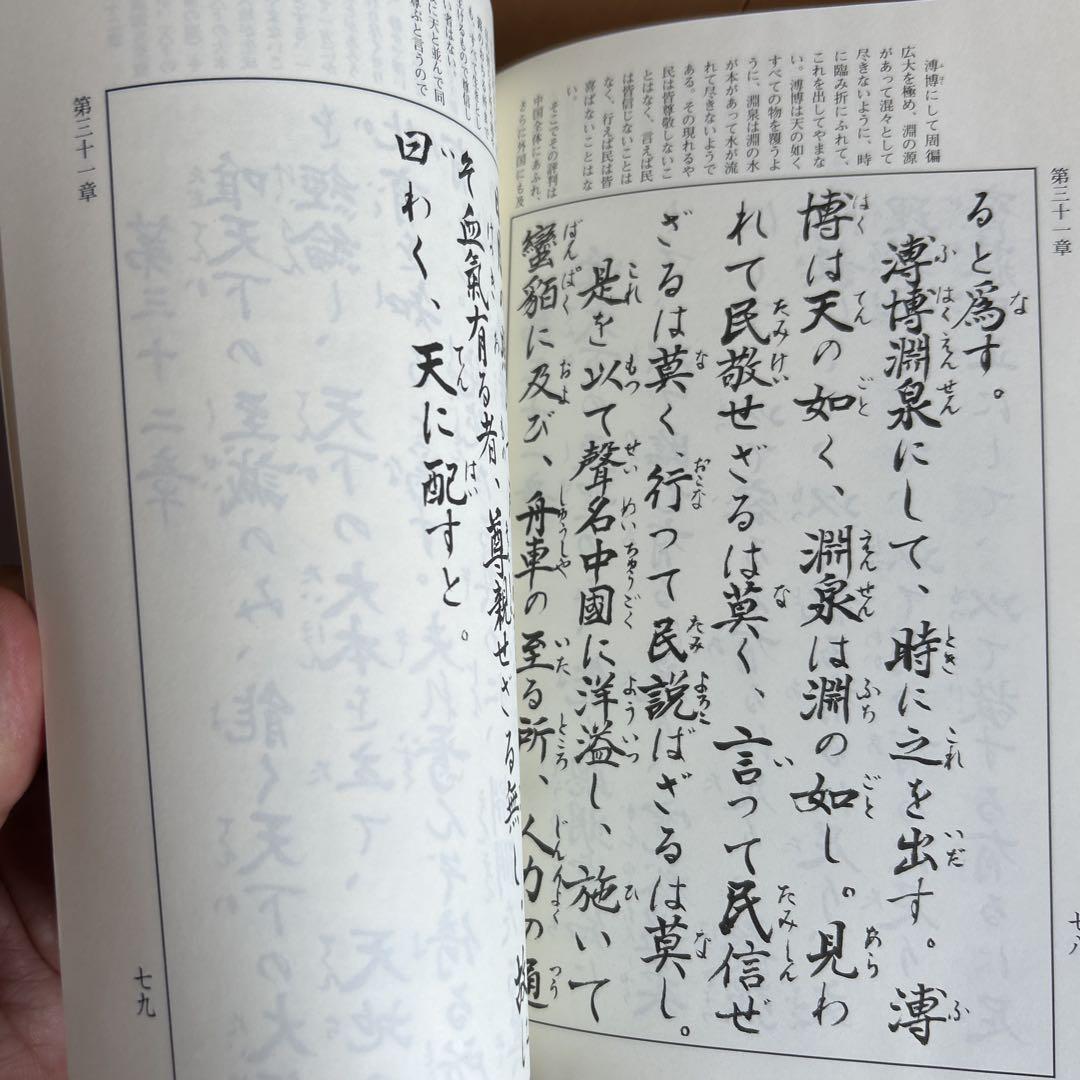 第三十一章
溥博にして周徧
広大を極め、淵の源
があって混々として
尽きないように、時
に臨み折にふれて、
これを出してやまな
い。溥博は天の如く
すべての物を覆うよ
うに、淵泉は淵の水
が本があって水が流
れて尽きないようで
ある。その現れるや
民は皆尊敬しないこ
とはなく、言えば民
は皆信じないことは
なく、行えば民は皆
喜ばないことはな
い。
そこでその評判は
中国全体にあふれ、
さらに外国にも及
ると爲す。
溥博淵泉にして、時に之を出す。溥
博は天の如く、淵泉は淵の如し。見わ
れて民敬せざるは莫く、言って民信ぜ
ざるは莫く、行って民説ばざるは莫し。
是を以て聲名中國に洋溢し、施いて
蠻貊に及び、舟車の至る所、人力の通
七八
そ血氣有る者、尊親せざる無し
曰わく、天に配すと。
い者はない。
に天と並んで同
尊ぶと言うので
第三十一章
七九